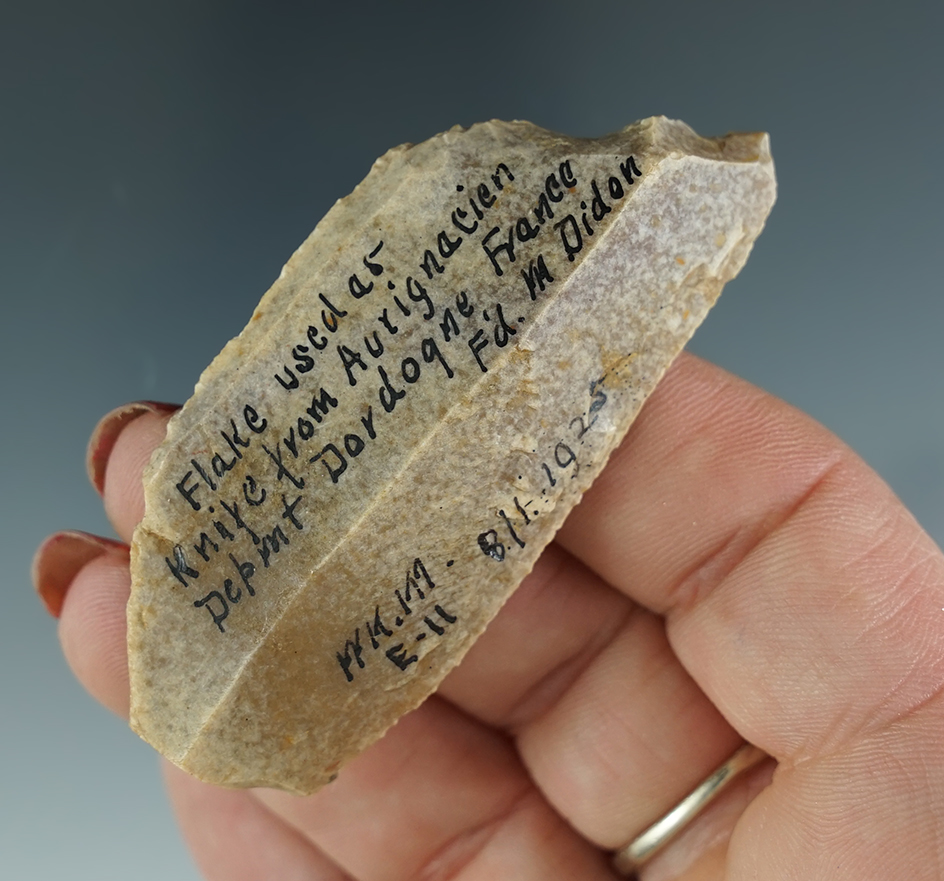 Flake used as
Knife from Aurignacien
Depmt Dordogne, France
Fd. M Didon
W.K.M. 8/1.1925
E-11